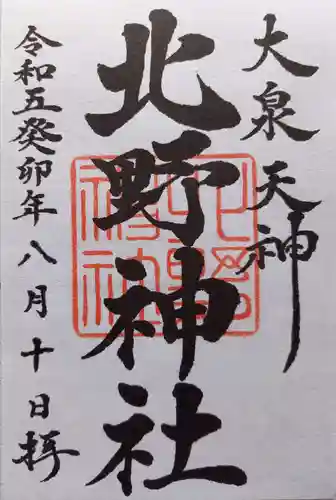 大泉天神
北野神社
令和五癸卯年八月十日拝
北野神社